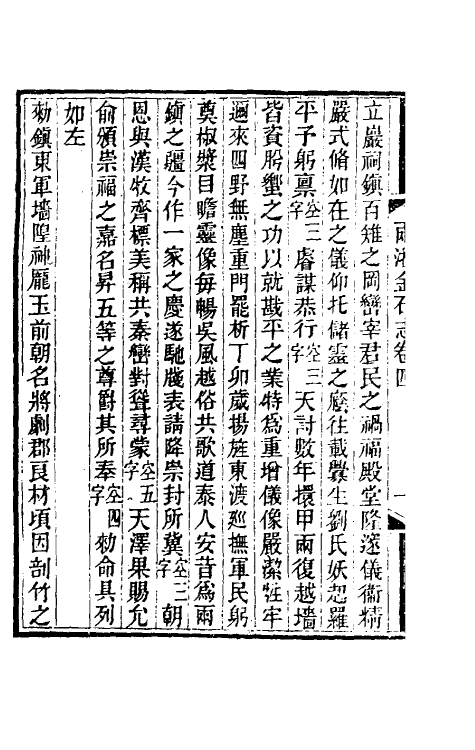 立巖祠鎮百雉之岡巒宰君民之禍福殿堂隆邃儀衞精
嚴式脩如在之儀仰托儲靈之廕往載釁生劉氏妖起羅
平予躬稟空三字睿謀恭行空三字天討數年擐甲兩復越墻
皆資肸蠁之功以就戡平之業特爲重增儀像嚴潔牲牢
邇來四野無塵重門罷柝丁卯歲揚旌東渡廵撫軍民躬
奠椒漿目瞻靈像每暢吳風越俗共歌道泰人安昔爲兩
鎮之疆今作一家之慶遂馳牋表請降崇封所冀空三字朝
恩與漢牧齊標美稱共秦巒對聳尋蒙空五字天澤果賜允
俞頒崇福之嘉名昇五等之尊爵其所奉空四字勑命具列
如左
勑鎮東軍墻隍神龐玉前朝名將劇郡良材頃因剖竹之
兩浙金石志卷四
一